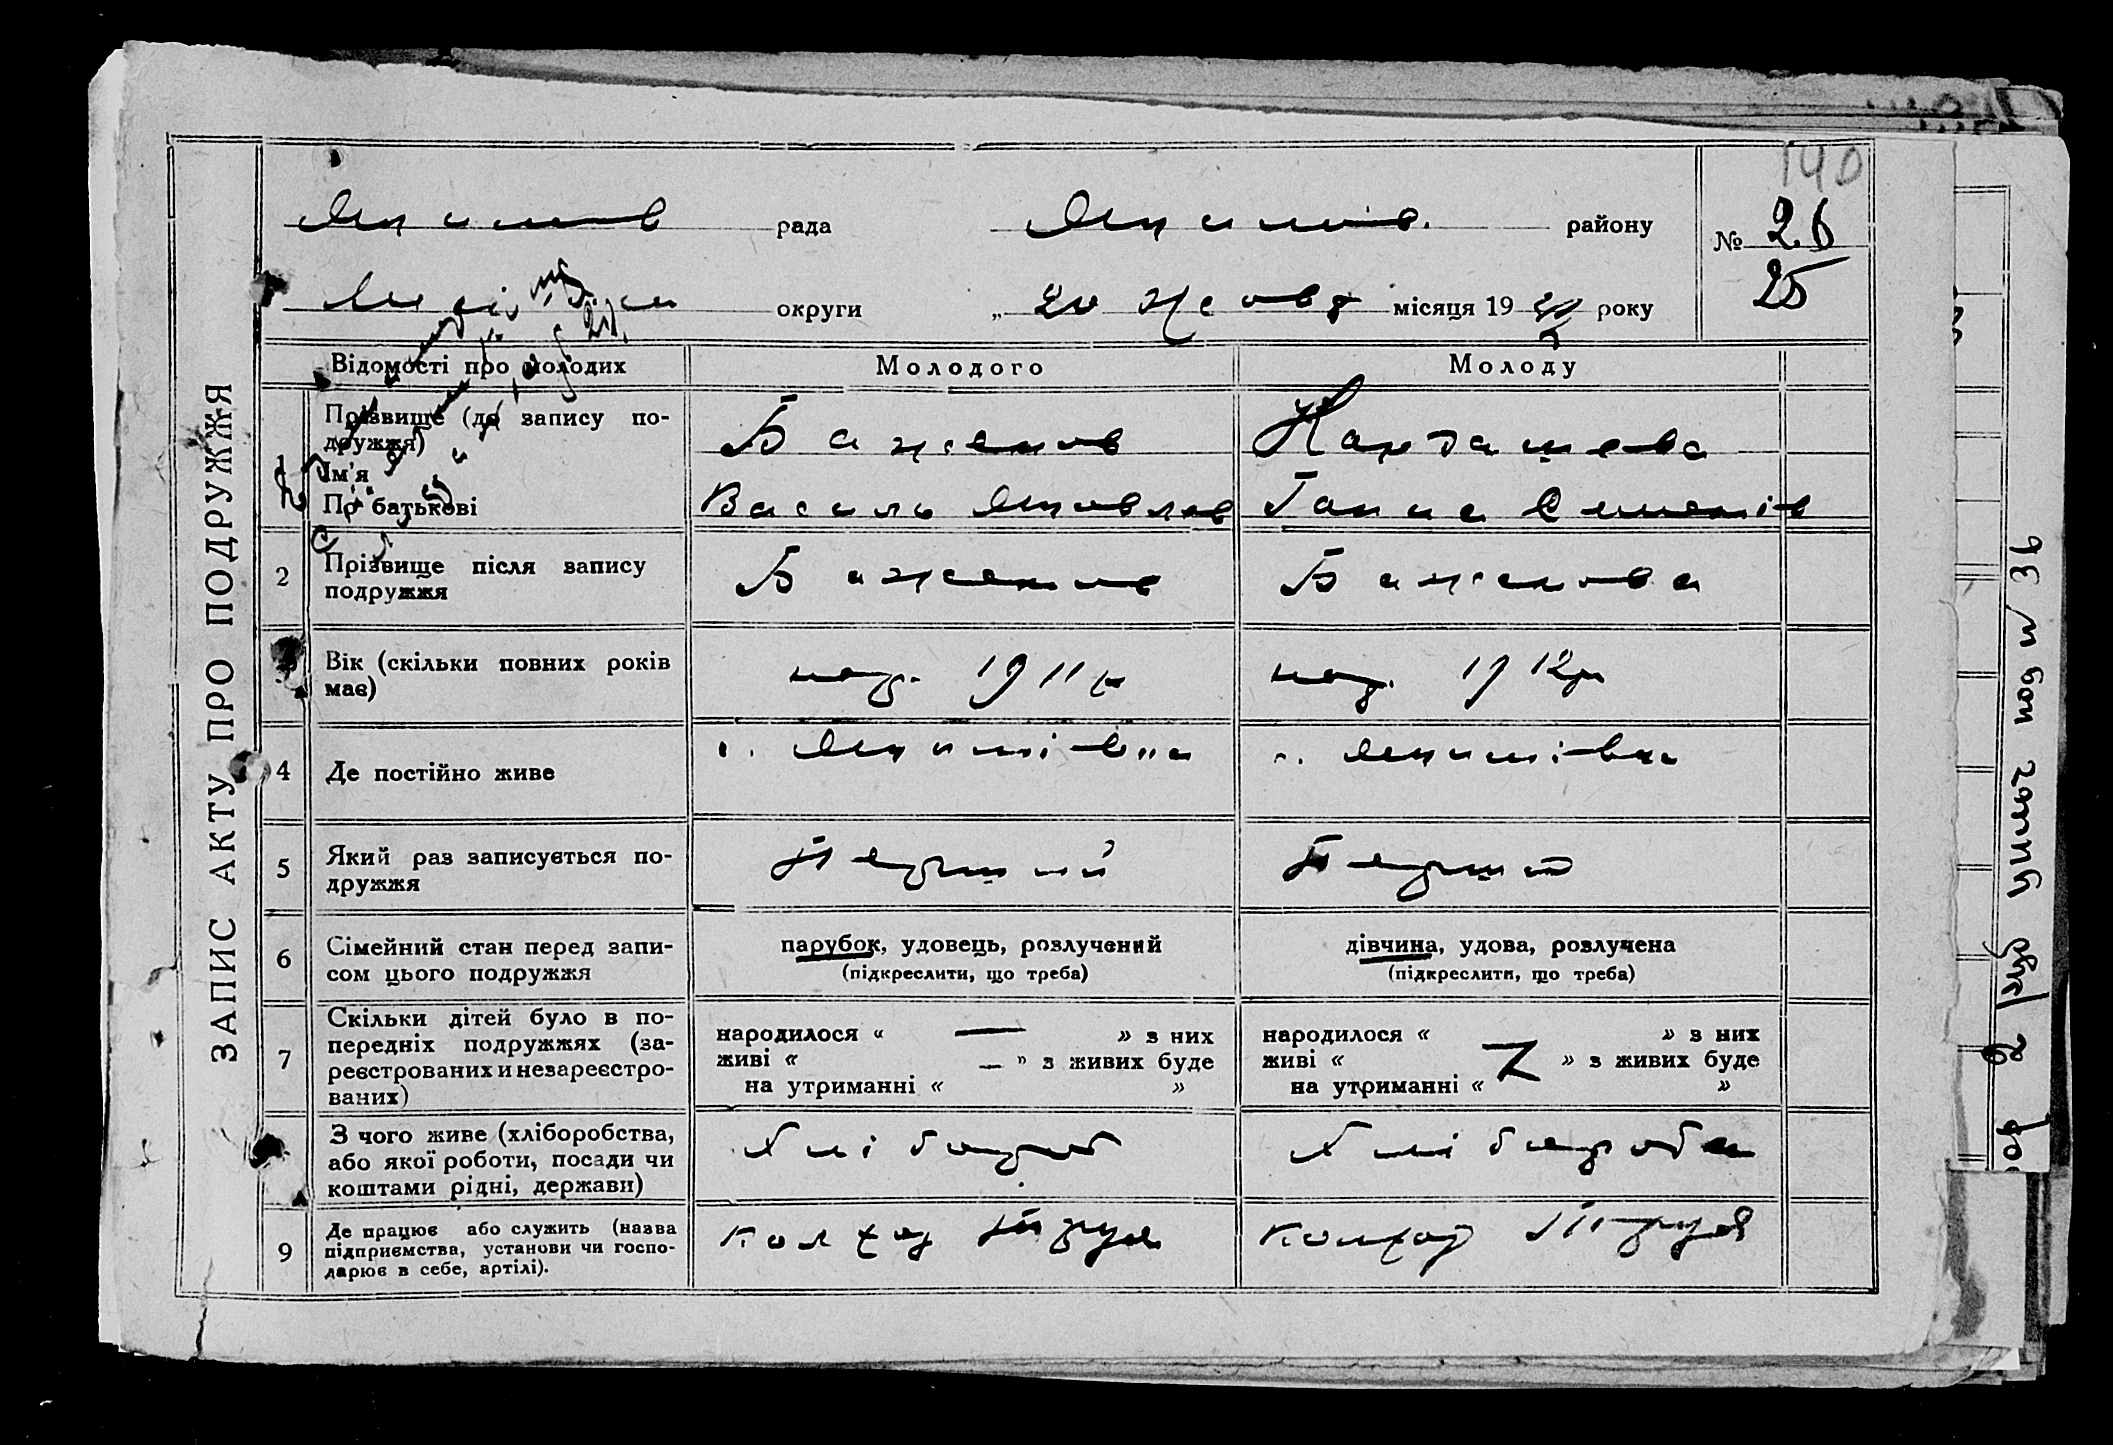 140
Якимів рада Якимів. району № 26
округи „ 20 Жовт місяця 19 року 25
Відомості про молодих Молодого Молоду
ЗАПИС АКТУ ПРО ПОДРУЖЖЯ
Прізвище (до запису по-
дружжя) Баженов Кардашева
Ім'я
По батькові Василь Яковлев Ганна Семенів
2 Прізвище після запису
подружжя Баженов Баженова
Вік (скільки повних років
має) нар. 1911 р нар. 1912 р
4 Де постійно живе с. Якимівка с. Якимівка
5 Який раз записується по-
дружжя Перший Перший
6 Сімейний стан перед запи-
сом цього подружжя
парубок, удовець, розлучений
(підкреслити, що треба)
дівчина, удова, розлучена
(підкреслити, що треба)
7 Скільки дітей було в по-
передніх подружжях (за-
реєстрованих и незареєстро-
ваних)
народилося « — » з них
живі « — » з живих буде
на утриманні « »
народилося « » з них
живі « » з живих буде
на утриманні « »
З чого живе (хліборобства,
або якої роботи, посади чи
коштами рідні, держави)
Хлібороб Хлібороба
9 Де працює або служить (назва
підприємства, установи чи госпо-
дарює в себе, артілі).
Колхоз Колхоз